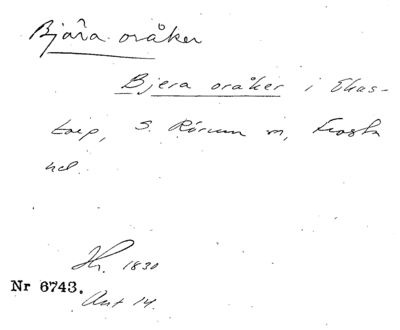 Bjära oråker
Bjera oråker i Ekas-
torp, S. Rörum sn, Frosta
hd.
Hr. 1830
Nr 6743.
Ant 14.